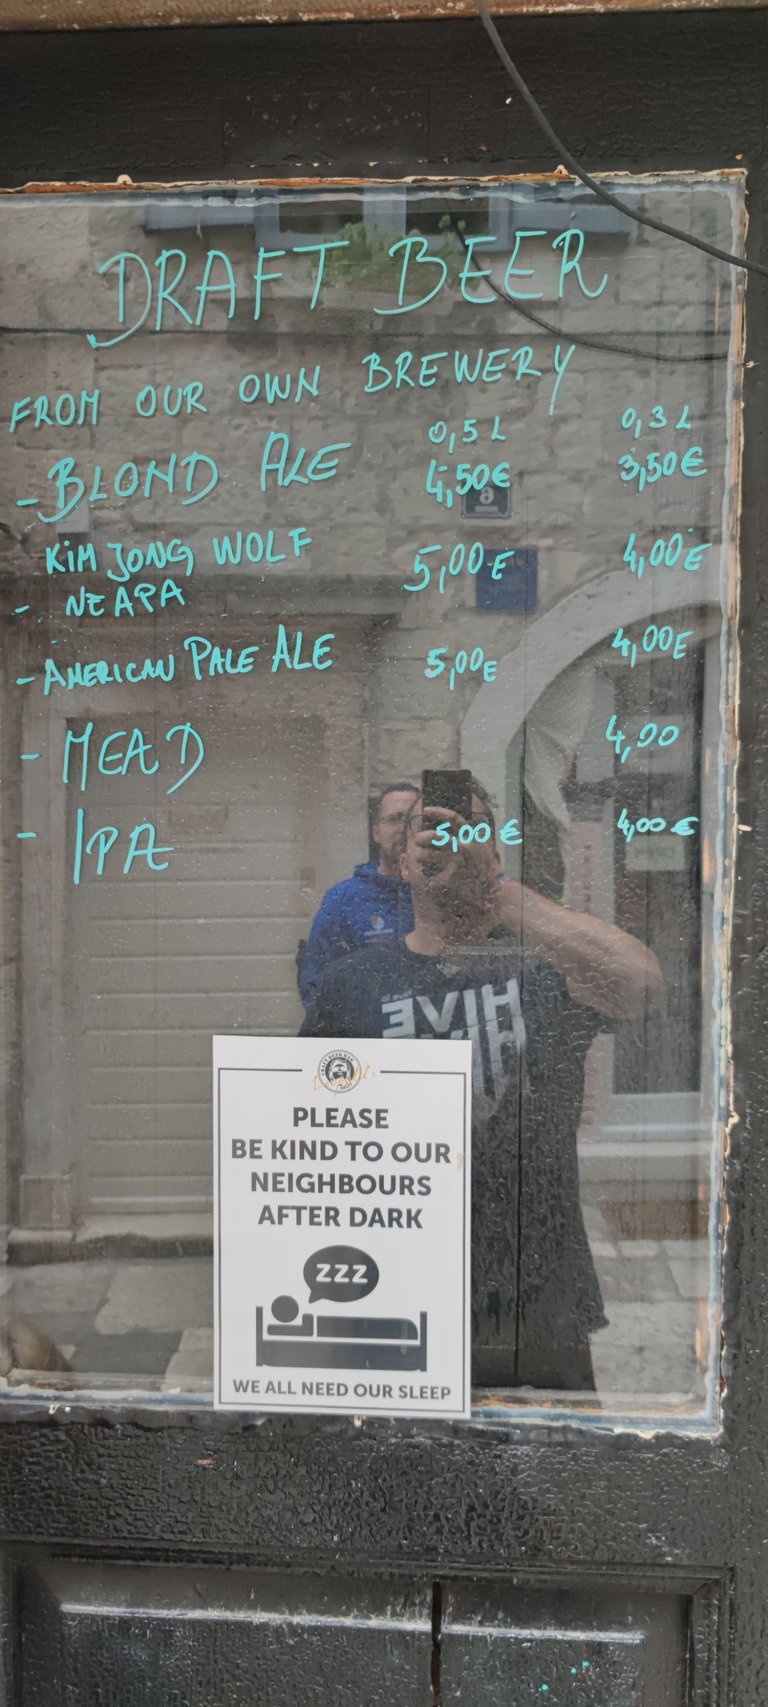 DRAFT BEER
FROM OUR OWN BREWERY
0,5 L 0,3 L
- BLOND ALE 4,50€ 3,50€
KIM JONG WOLF
- NEAPA 5,00€ 4,00€
- AMERICAN PALE ALE 5,00€ 4,00€
- MEAD 4,00
- IPA 5,00€ 4,00€
HIVE
CRAFT BEER BAR
PLEASE
BE KIND TO OUR
NEIGHBOURS
AFTER DARK
ZZZ
WE ALL NEED OUR SLEEP